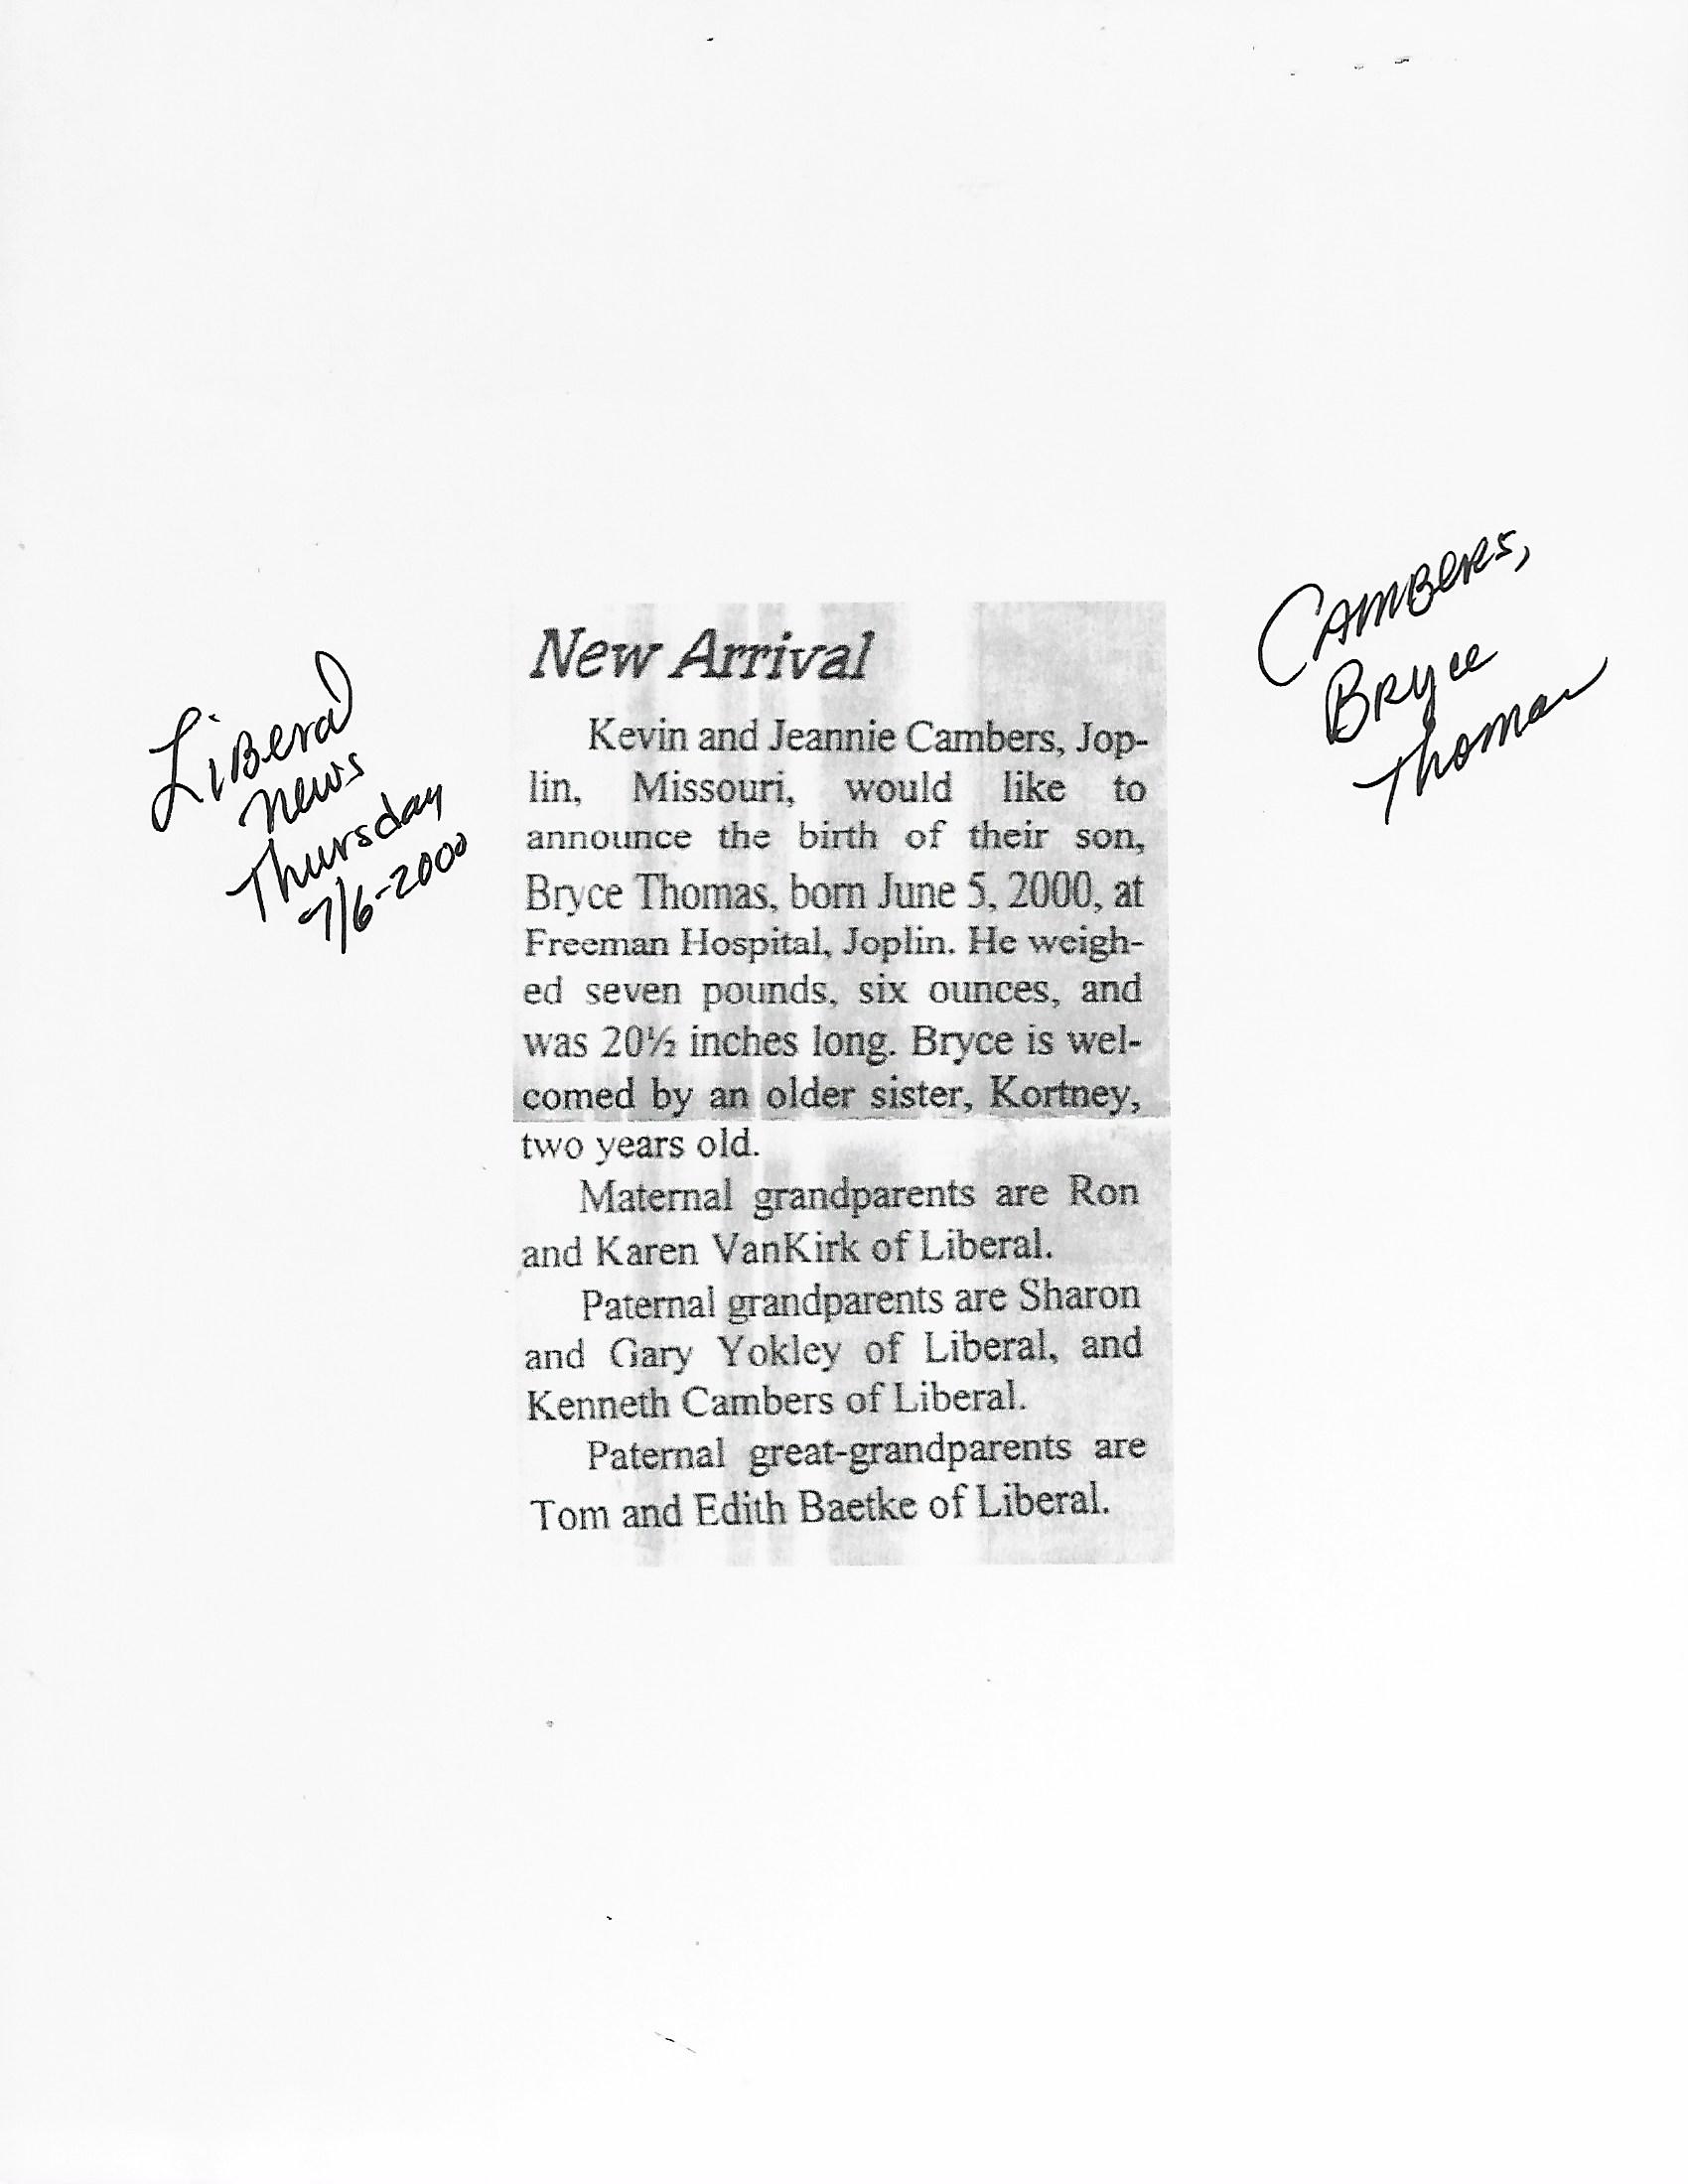 Liberal
News
Thursday
7/6-2000
Cambers,
Bryce
Thomas
New Arrival
Kevin and Jeannie Cambers, Jop-
lin, Missouri, would like to
announce the birth of their son,
Bryce Thomas, born June 5, 2000, at
Freeman Hospital, Joplin. He weigh-
ed seven pounds, six ounces, and
was 20½ inches long. Bryce is wel-
comed by an older sister, Kortney,
two years old.
Maternal grandparents are Ron
and Karen VanKirk of Liberal.
Paternal grandparents are Sharon
and Gary Yokley of Liberal, and
Kenneth Cambers of Liberal.
Paternal great-grandparents are
Tom and Edith Baetke of Liberal.